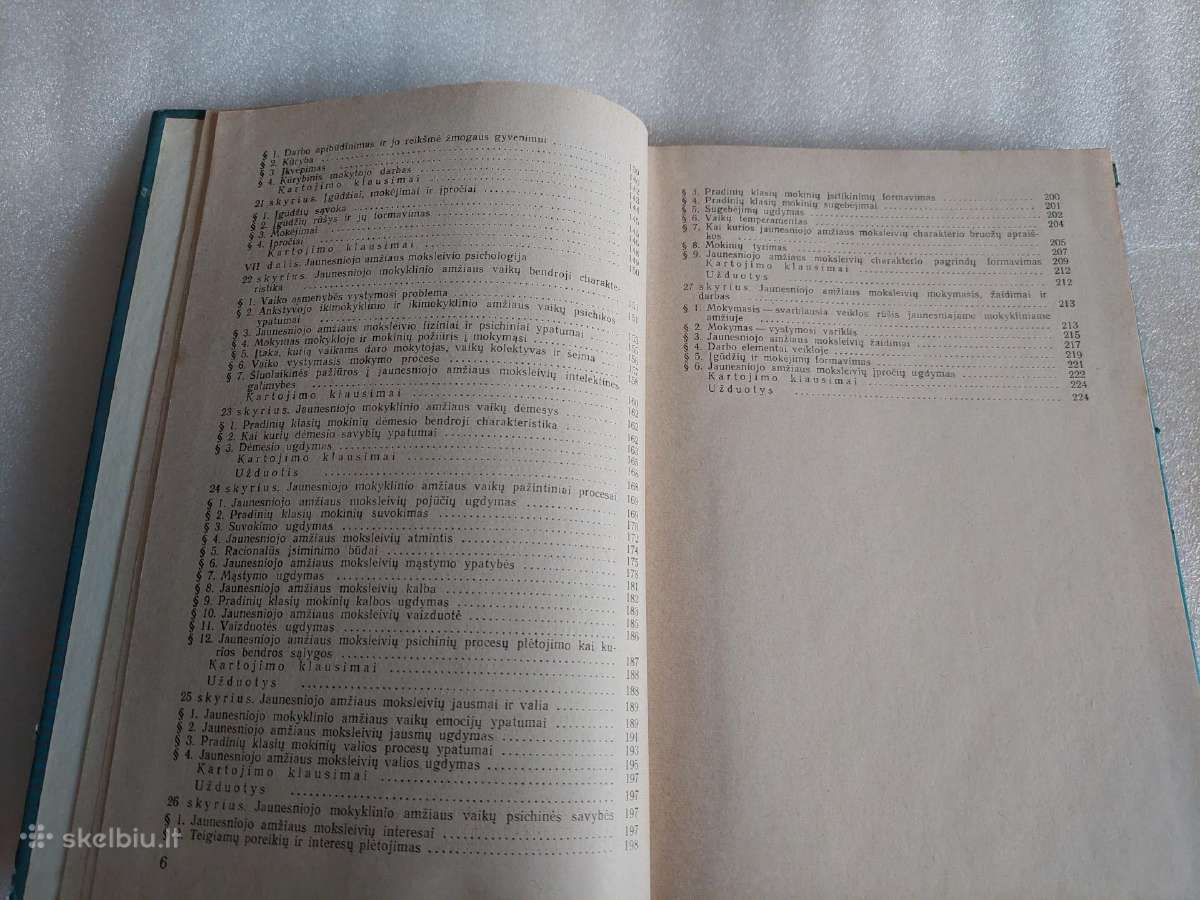 § 1. Darbo apibūdinimas ir jo reikšmė žmogaus gyvenimui
§ 2. Kūryba
§ 3. Įkvėpimas
§ 4. Kūrybinis mokytojo darbas
Kartojimo klausimai
21 skyrius. Įgūdžiai, mokėjimai ir įpročiai
§ 1. Įgūdžių sąvoka
§ 2. Įgūdžių rūšys ir jų formavimas
§ 3. Mokėjimai
§ 4. Įpročiai
Kartojimo klausimai
VII dalis. Jaunesniojo amžiaus moksleivio psichologija
22 skyrius. Jaunesniojo mokyklinio amžiaus vaikų bendroji charakte-
ristika 150
§ 1. Vaiko asmenybės vystymosi problema
§ 2. Ankstyvojo ikimokyklinio ir ikimokyklinio amžiaus vaikų psichikos
ypatumai
§ 3. Jaunesniojo amžiaus moksleivio fiziniai ir psichiniai ypatumai
§ 4. Mokymas mokykloje ir mokinių požiūris į mokymąsi
§ 5. Įtaka, kurią vaikams daro mokytojas, vaikų kolektyvas ir šeima
§ 6. Vaiko vystymasis mokymo procese
§ 7. Šiuolaikinės pažiūros į jaunesniojo amžiaus moksleivių intelektines
galimybes
Kartojimo klausimai 160
23 skyrius. Jaunesniojo mokyklinio amžiaus vaikų dėmesys 162
§ 1. Pradinių klasių mokinių dėmesio bendroji charakteristika 162
§ 2. Kai kurių dėmesio savybių ypatumai 162
§ 3. Dėmesio ugdymas 163
Kartojimo klausimai 165
Užduotis 168
24 skyrius. Jaunesniojo mokyklinio amžiaus vaikų pažintiniai procesai 168
§ 1. Jaunesniojo amžiaus moksleivių pojūčių ugdymas 169
§ 2. Pradinių klasių mokinių suvokimas 169
§ 3. Suvokimo ugdymas 170
§ 4. Jaunesniojo amžiaus moksleivių atmintis 172
§ 5. Racionalūs įsiminimo būdai 174
§ 6. Jaunesniojo amžiaus moksleivių mąstymo ypatybės 175
§ 7. Mąstymo ugdymas 178
§ 8. Jaunesniojo amžiaus moksleivių kalba 181
§ 9. Pradinių klasių mokinių kalbos ugdymas 182
§ 10. Jaunesniojo amžiaus moksleivių vaizduotė 185
§ 11. Vaizduotės ugdymas 185
§ 12. Jaunesniojo amžiaus moksleivių psichinių procesų plėtojimo kai ku- 186
rios bendros sąlygos 187
Kartojimo klausimai 188
Užduotys 188
25 skyrius. Jaunesniojo amžiaus moksleivių jausmai ir valia 189
§ 1. Jaunesniojo mokyklinio amžiaus vaikų emocijų ypatumai 189
§ 2. Jaunesniojo amžiaus moksleivių jausmų ugdymas 191
§ 3. Pradinių klasių mokinių valios procesų ypatumai 193
§ 4. Jaunesniojo amžiaus moksleivių valios ugdymas 195
Kartojimo klausimai 197
Užduotys 197
26 skyrius. Jaunesniojo mokyklinio amžiaus vaikų psichinės savybės 197
§ 1. Jaunesniojo amžiaus moksleivių interesai 197
Teigiamų poreikių ir interesų plėtojimas 198
6
§ 3. Pradinių klasių mokinių įsitikinimų formavimas 200
§ 4. Pradinių klasių mokinių sugebėjimai 201
§ 5. Sugebėjimų ugdymas 202
§ 6. Vaikų temperamentas 204
§ 7. Kai kurios jaunesniojo amžiaus moksleivių charakterio bruožų apraiš-
kos 205
§ 8. Mokinių tyrimas 207
§ 9. Jaunesniojo amžiaus moksleivių charakterio pagrindų formavimas 209
Kartojimo klausimai 212
Užduotys 212
27 skyrius. Jaunesniojo amžiaus moksleivių mokymasis, žaidimai ir
darbas 213
§ 1. Mokymasis — svarbiausia veiklos rūšis jaunesniajame mokykliniame
amžiuje 213
§ 2. Mokymas — vystymosi variklis 215
§ 3. Jaunesniojo amžiaus moksleivių žaidimai 217
§ 4. Darbo elementai veikloje 219
§ 5. Įgūdžių ir mokėjimų formavimas 221
§ 6. Jaunesniojo amžiaus moksleivių įpročių ugdymas 222
Kartojimo klausimai 224
Užduotys 224
skelbiu.lt